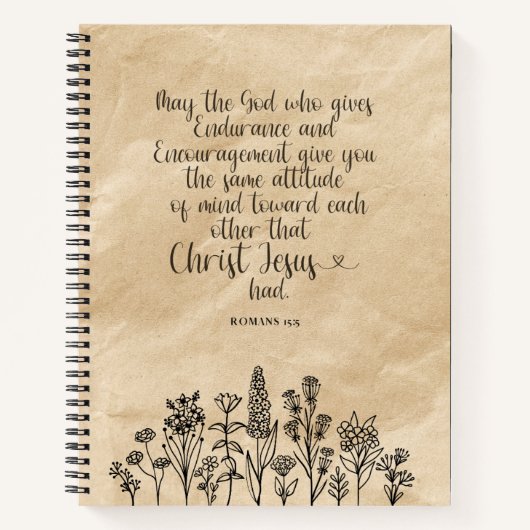 May the God who gives
Endurance and
Encouragement give you
the same attitude
of mind toward each
other that
Christ Jesus
had.
ROMANS 15:5